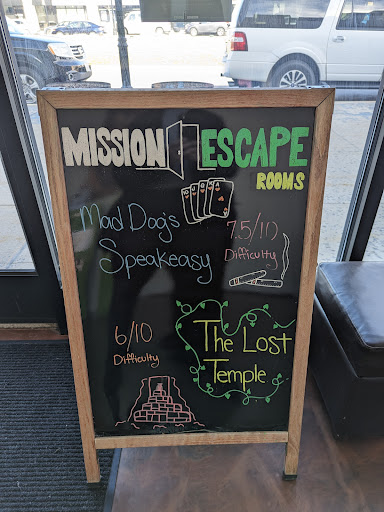 MISSION ESCAPE
ROOMS
Mad Dog's
Speakeasy
7.5/10
Difficulty
6/10
Difficulty
The Lost
Temple